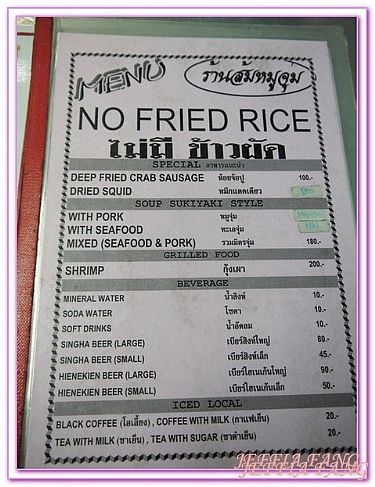 MENU ร้านส้มหมูจุ่ม
NO FRIED RICE
ไม่มี ข้าวผัด
SPECIAL อาหารแนะนำ
DEEP FRIED CRAB SAUSAGE ห้อยจ้อปู 100.-
DRIED SQUID หมึกแดดเดียว 150
SOUP SUKIYAKI STYLE
WITH PORK หมูจุ่ม
WITH SEAFOOD ทะเลจุ่ม 150
MIXED (SEAFOOD & PORK) รวมมิตรจุ่ม 180.-
GRILLED FOOD
SHRIMP กุ้งเผา 200.-
BEVERAGE
MINERAL WATER น้ำสิงห์ 10.-
SODA WATER โซดา 10.-
SOFT DRINKS น้ำอัดลม 10.-
SINGHA BEER (LARGE) เบียร์สิงห์ใหญ่ 80.-
SINGHA BEER (SMALL) เบียร์สิงห์เล็ก 45.-
HIENEKIEN BEER (LARGE) เบียร์ไฮเนเก้นใหญ่ 90.-
HIENEKIEN BEER (SMALL) เบียร์ไฮเนเก้นเล็ก 50.-
ICED LOCAL
BLACK COFFEE (โอเลี้ยง), COFFEE WITH MILK (กาแฟเย็น) 20.-
TEA WITH MILK (ชาเย็น), TEA WITH SUGAR (ชาดำเย็น) 20.-
JEFFIA FANG